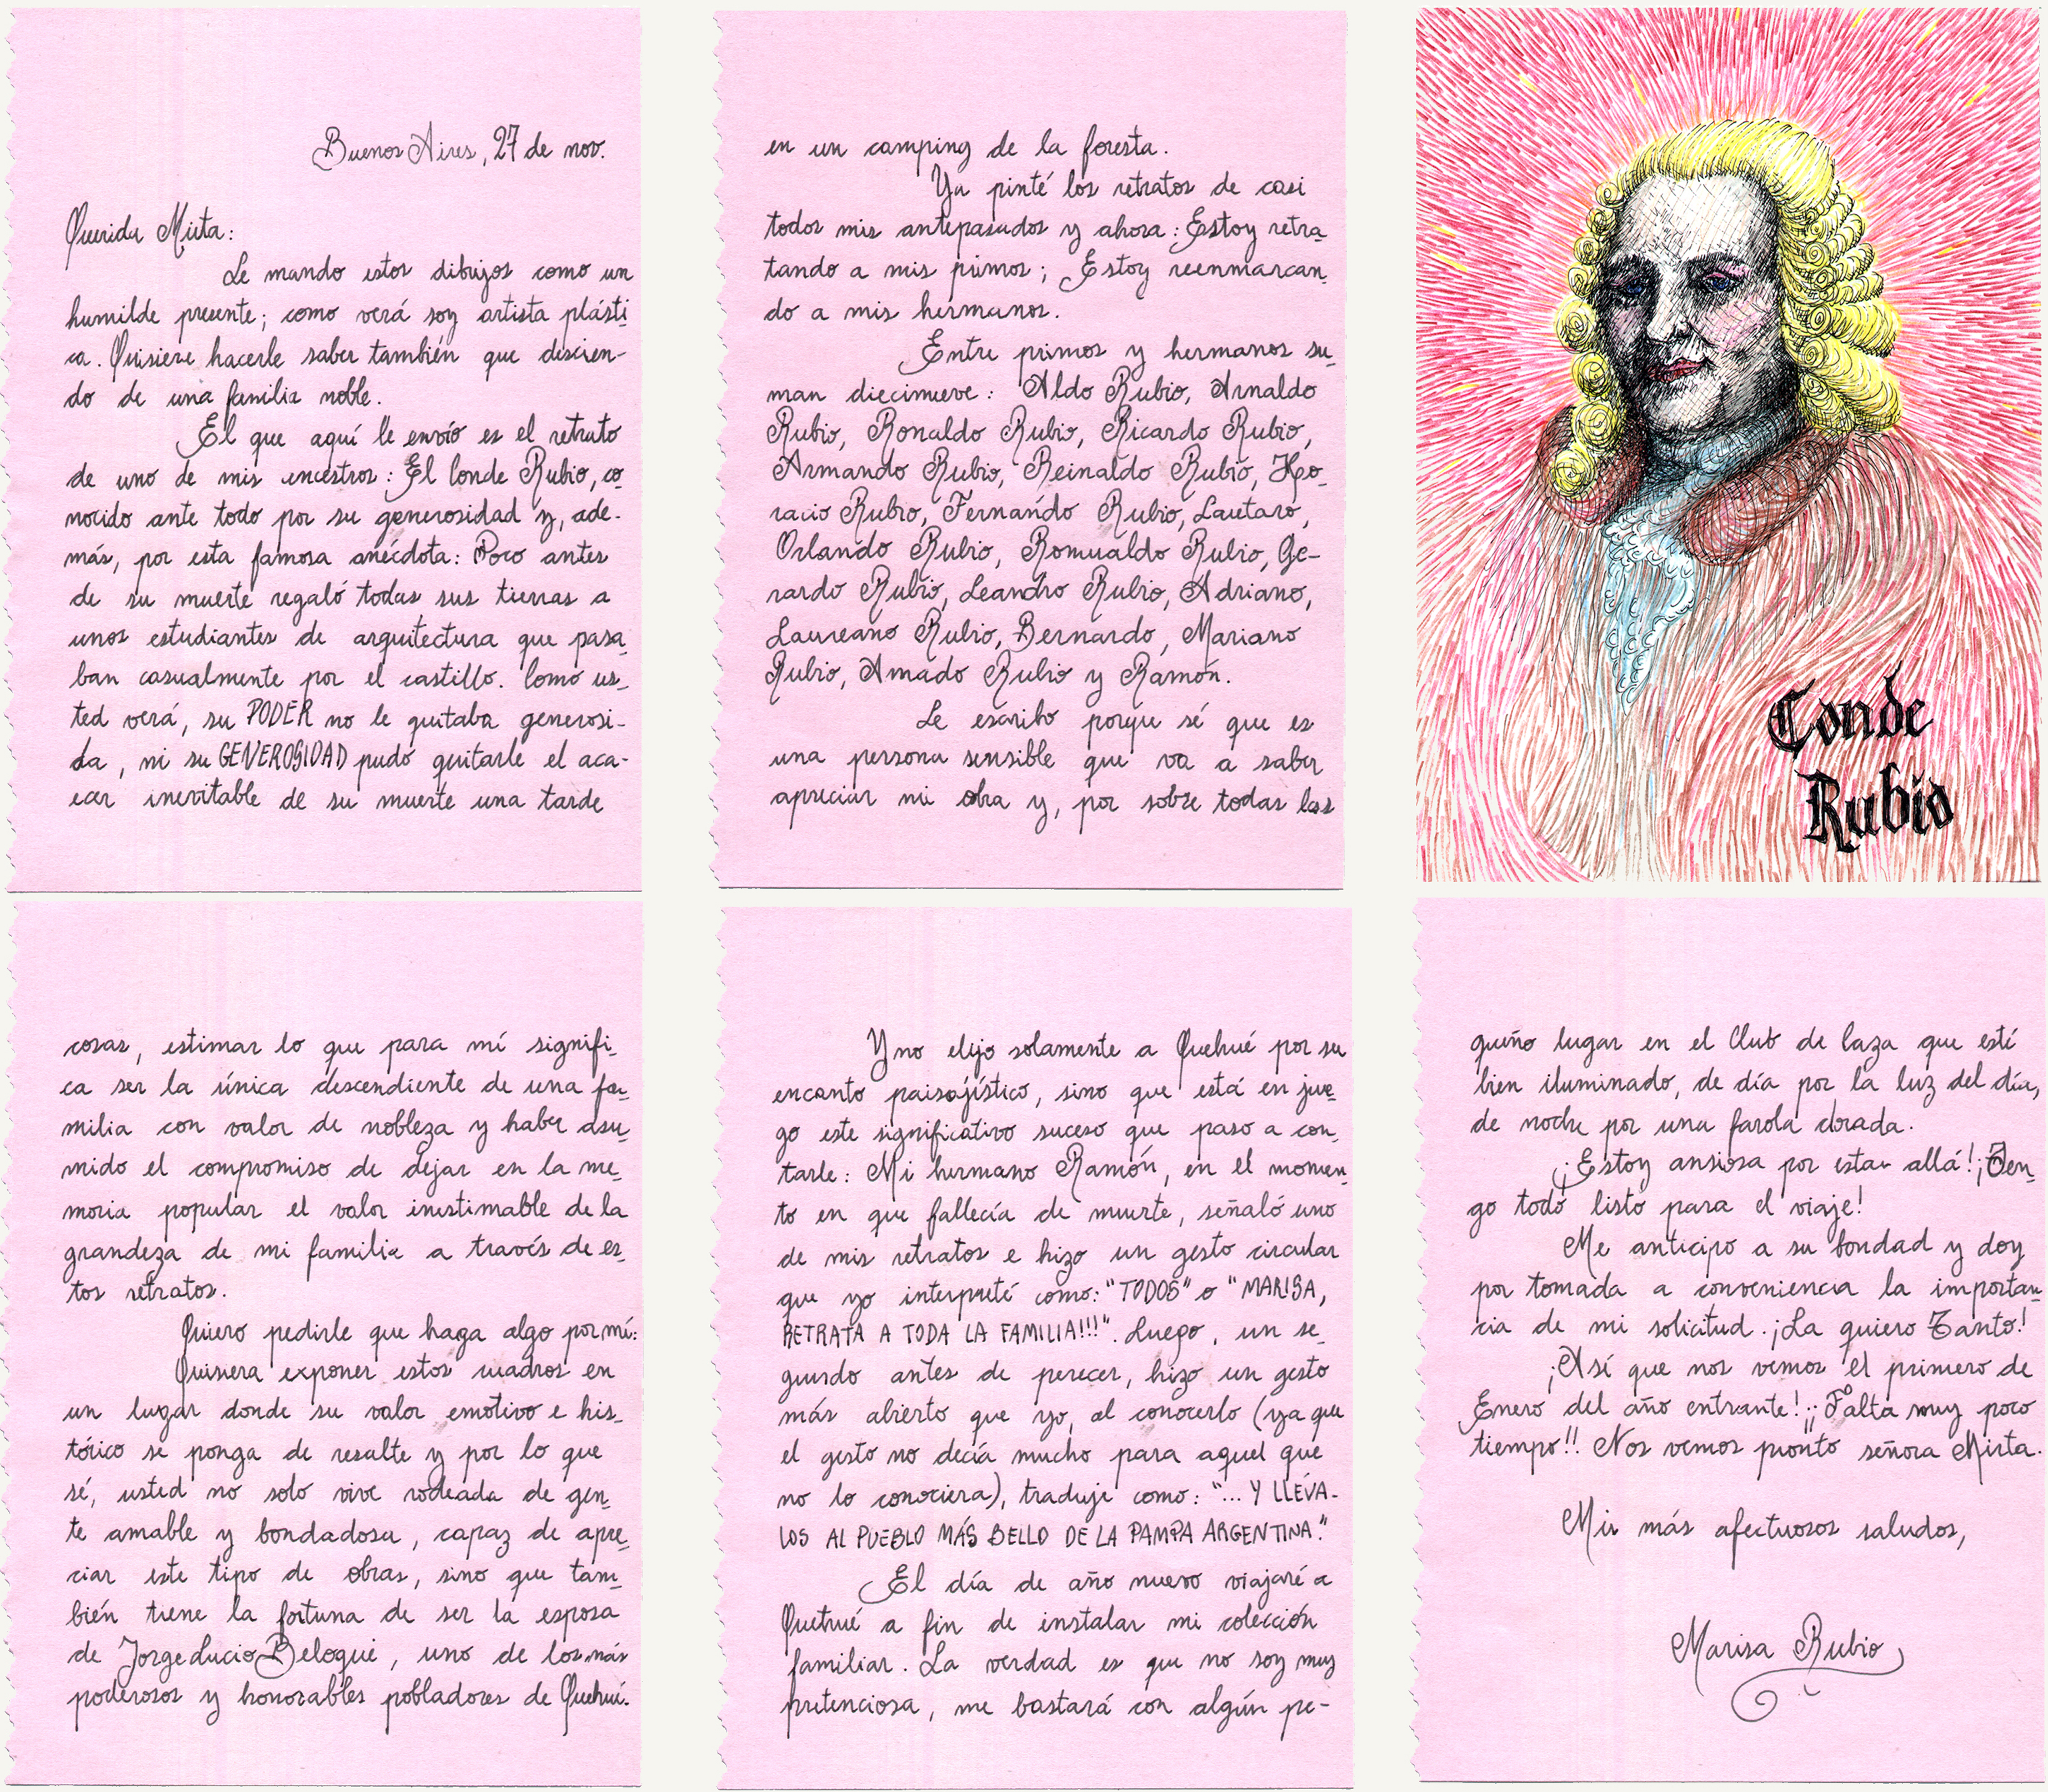 Buenos Aires, 27 de nov.
Querida Mirta:
Le mando estos dibujos como un
humilde presente; como verá soy artista plásti-
ca. Quisiera hacerle saber también que descien-
do de una familia noble.
El que aquí le envío es el retrato
de uno de mis ancestros: El Conde Rubio, co-
nocido ante todo por su generosidad y, ade-
más, por esta famosa anécdota: Poco antes
de su muerte regaló todas sus tierras a
unos estudiantes de arquitectura que pasa-
ban casualmente por el castillo. Como us-
ted verá, su PODER no le quitaba generosi-
da, ni su GENEROSIDAD pudó quitarle el aca-
ecer inevitable de su muerte una tarde
en un camping de la foresta.
Ya pinté los retratos de casi
todos mis antepasados y ahora: Estoy retra-
tando a mis primos; Estoy reenmarcan-
do a mis hermanos.
Entre primos y hermanos su-
man diecinueve: Aldo Rubio, Arnaldo
Rubio, Ronaldo Rubio, Ricardo Rubio,
Armando Rubio, Reinaldo Rubio, Ho-
racio Rubio, Fernándo Rubio, Lautaro,
Orlando Rubio, Romualdo Rubio, Ge-
rardo Rubio, Leandro Rubio, Adriano,
Laureano Rubio, Bernardo, Mariano
Rubio, Amado Rubio y Ramón.
Le escribo porque sé que es
una persona sensible que va a saber
apreciar mi obra y, por sobre todas las
Conde
Rubio
cosas, estimar lo que para mí signifi-
ca ser la única descendiente de una fa-
milia con valor de nobleza y haber asu-
mido el compromiso de dejar en la me-
moria popular el valor inestimable de la
grandeza de mi familia a través de es-
tos retratos.
Quiero pedirle que haga algo por mí:
Quisiera exponer estos cuadros en
un lugar donde su valor emotivo e his-
tórico se ponga de resalte y por lo que
sé, usted no solo vive rodeada de gen-
te amable y bondadosa, capaz de apre-
ciar este tipo de obras, sino que tam-
bién tiene la fortuna de ser la esposa
de Jorge Lucio Beloqui, uno de los más
poderosos y honorables pobladores de Quehué.
Y no elijo solamente a Quehué por su
encanto paisajístico, sino que está en jue-
go este significativo suceso que paso a con-
tarle: Mi hermano Ramón, en el momen-
to en que fallecía de muerte, señaló uno
de mis retratos e hizo un gesto circular
que yo interpreté como: "TODOS" o "MARISA,
RETRATA A TODA LA FAMILIA!!!". Luego, un se-
gundo antes de perecer, hizo un gesto
más abierto que yo, al conocerlo (ya que
el gesto no decía mucho para aquel que
no lo conociera), traduje como: "... Y LLÉVA-
LOS AL PUEBLO MÁS BELLO DE LA PAMPA ARGENTINA."
El día de año nuevo viajaré a
Quehué a fin de instalar mi colección
familiar. La verdad es que no soy muy
pretenciosa, me bastará con algún pe-
queño lugar en el Club de Caza que esté
bien iluminado, de día por la luz del día,
de noche por una farola dorada.
¡Estoy ansiosa por estar allá! ¡Ten-
go todo listo para el viaje!
Me anticipo a su bondad y doy
por tomada a conveniencia la importan-
cia de mi solicitud. ¡La quiero Tanto!
¡Así que nos vemos el primero de
Enero del año entrante! ¡¡Falta muy poco
tiempo!! Nos vemos pronto señora Mirta.
Mis más afectuosos saludos,
Marisa Rubio